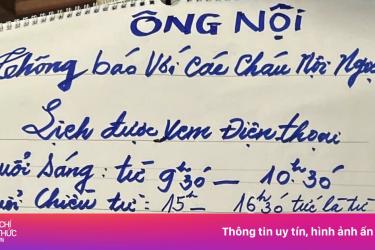 ÔNG NỘI
Thông báo Với các Cháu Nội Ngo
Lịch được xem Điện thoại
uổi Sáng: từ 9h30 — 10h30
ổi Chiều từ: 15h — 16h30 tức là từ
CHÍ
THỨC
Thông tin uy tín, hình ảnh ấn